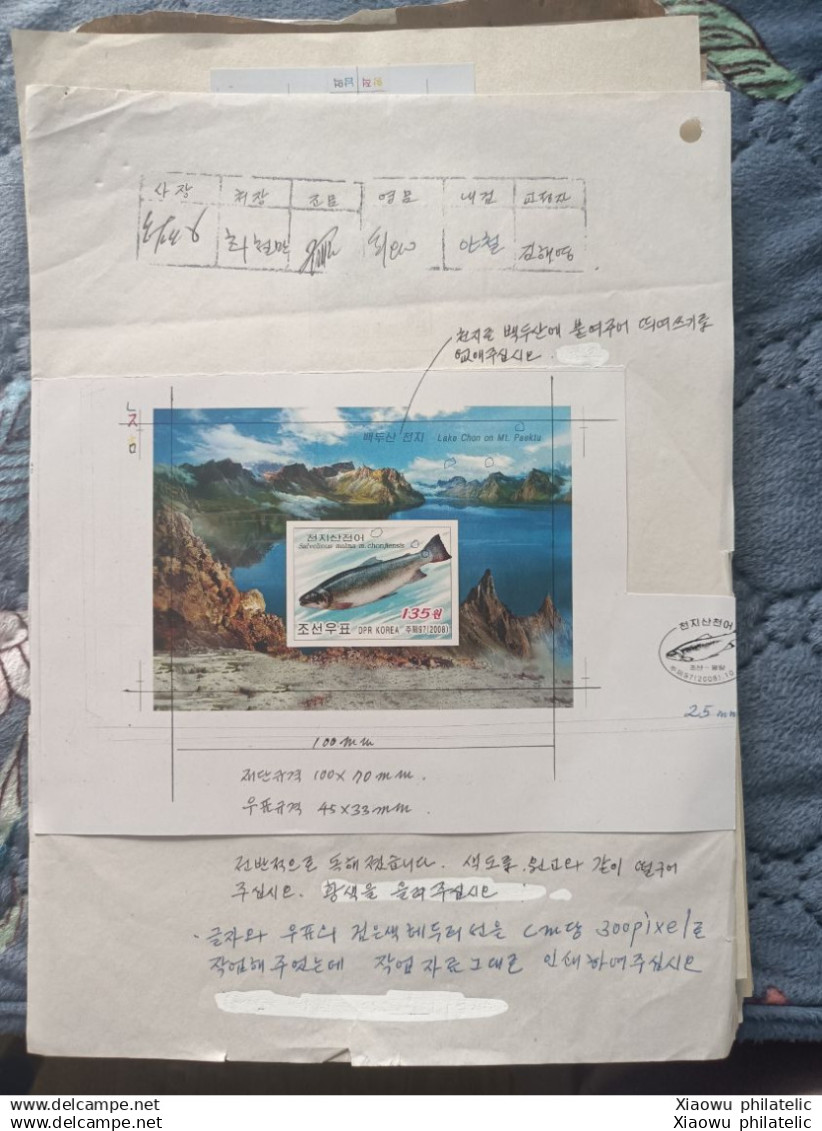 사장 처장 조문 영문 내검 교정자
최현만 안철 김해영
천지를 백두산에 붙여주어 띄여쓰기를
없애주십시오
백두산 천지 Lake Chon on Mt. Paektu
천지산천어
Salvelinus malma m. chonjiensis
135원
조선우표 DPR KOREA 주체97(2008)
천지산천어
조선-평양
주체97(2008).10
25mm
100mm
재단규격 100x70mm.
우표규격 45x33mm.
전반적으로 독해졌습니다. 색도를 원고와 같이 떨구어
주십시오. 황색을 올려주십시오
· 글자와 우표의 검은색테두리선은 cm당 300pixel로
작업해주었는데 작업자료그대로 인쇄하여주십시오
Xiaowu philatelic Xiaowu philatelic
Xiaowu philatelic Xiaowu philatelic